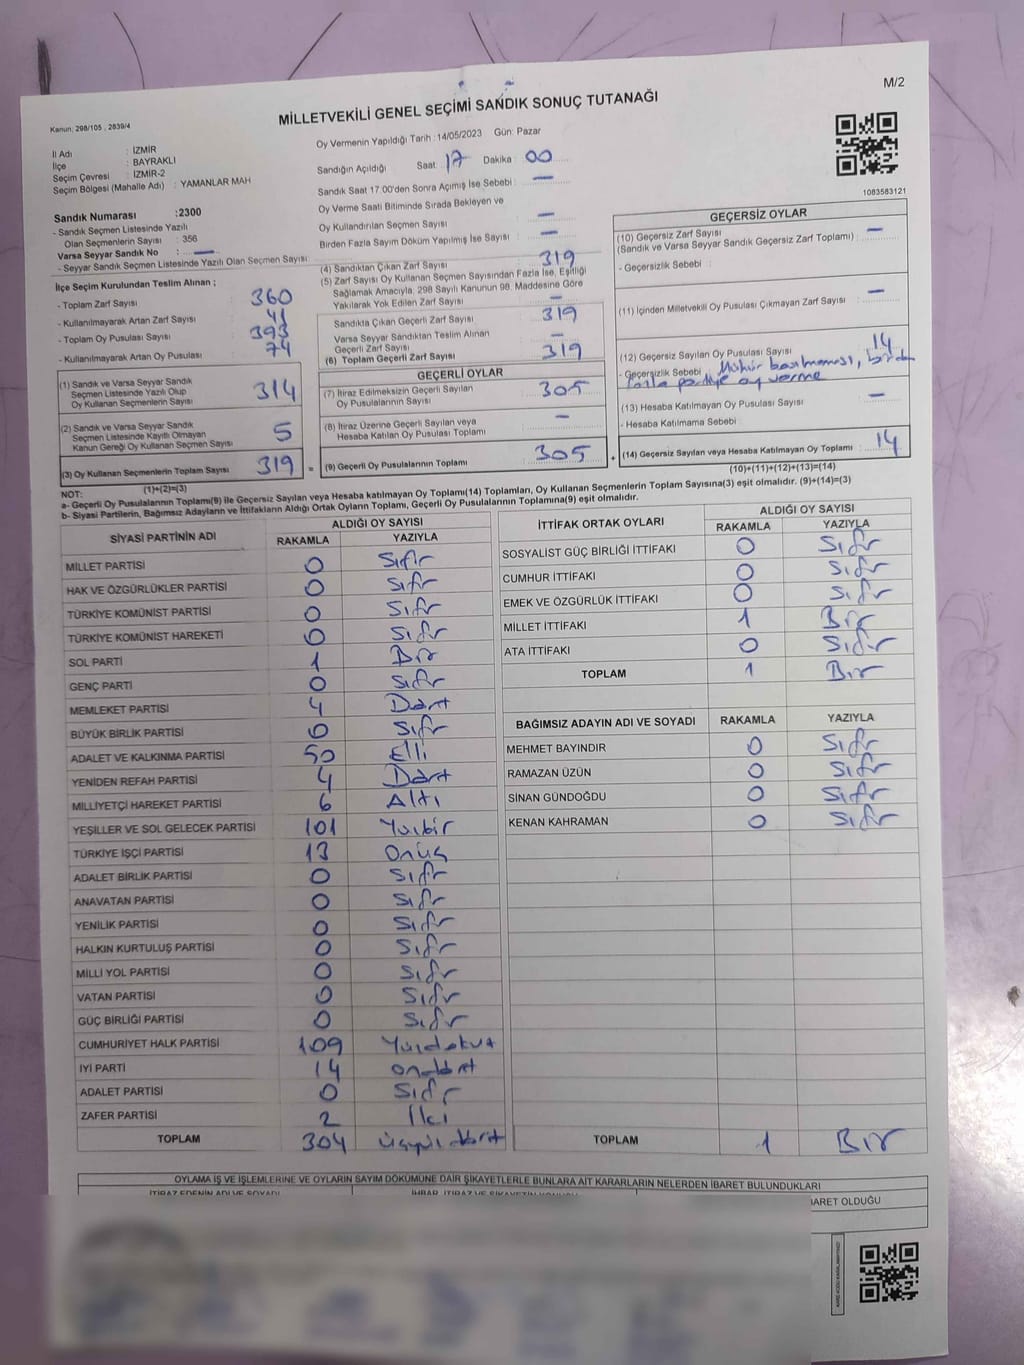 M/2
MİLLETVEKİLİ GENEL SEÇİMİ SANDIK SONUÇ TUTANAĞI
Kanun: 298/105 , 2839/4
İl Adı : İZMİR
İlçe : BAYRAKLI
Seçim Çevresi : İZMİR-2
Seçim Bölgesi (Mahalle Adı) : YAMANLAR MAH
Sandık Numarası :2300
- Sandık Seçmen Listesinde Yazılı
Olan Seçmenlerin Sayısı : 356
Varsa Seyyar Sandık No : —
- Seyyar Sandık Seçmen Listesinde Yazılı Olan Seçmen Sayısı:
Oy Vermenin Yapıldığı Tarih : 14/05/2023 Gün: Pazar
Sandığın Açıldığı Saat: 17 Dakika : 00
Sandık Saat 17.00'den Sonra Açımış İse Sebebi : —
Oy Verme Saati Bitiminde Sırada Bekleyen ve
Oy Kullandırılan Seçmen Sayısı : —
Birden Fazla Sayım Döküm Yapılmış İse Sayısı : —
1083583121
İlçe Seçim Kurulundan Teslim Alınan ;
- Toplam Zarf Sayısı : 360
- Kullanılmayarak Artan Zarf Sayısı : 41
- Toplam Oy Pusulası Sayısı : 393
- Kullanılmayarak Artan Oy Pusulası : 74
(1) Sandık ve Varsa Seyyar Sandık
Seçmen Listesinde Yazılı Olup
Oy Kullanan Seçmenlerin Sayısı : 314
(2) Sandık ve Varsa Seyyar Sandık
Seçmen Listesinde Kayıtlı Olmayan
Kanun Gereği Oy Kullanan Seçmen Sayısı : 5
(3) Oy Kullanan Seçmenlerin Toplam Sayısı : 319 =
(1)+(2)=(3)
(4) Sandıktan Çıkan Zarf Sayısı : 319
(5) Zarf Sayısı Oy Kullanan Seçmen Sayısından Fazla İse, Eşitliği
Sağlamak Amacıyla, 298 Sayılı Kanunun 98. Maddesine Göre
Yakılarak Yok Edilen Zarf Sayısı : —
Sandıkta Çıkan Geçerli Zarf Sayısı : 319
Varsa Seyyar Sandıktan Teslim Alınan
Geçerli Zarf Sayısı : —
(6) Toplam Geçerli Zarf Sayısı : 319
GEÇERLİ OYLAR
(7) İtiraz Edilmeksizin Geçerli Sayılan
Oy Pusulalarının Sayısı : 305
(8) İtiraz Üzerine Geçerli Sayılan veya
Hesaba Katılan Oy Pusulası Toplamı : —
(9) Geçerli Oy Pusulalarının Toplamı : 305 +
GEÇERSİZ OYLAR
(10) Geçersiz Zarf Sayısı
(Sandık ve Varsa Seyyar Sandık Geçersiz Zarf Toplamı) : —
- Geçersizlik Sebebi :
(11) İçinden Milletvekili Oy Pusulası Çıkmayan Zarf Sayısı : —
(12) Geçersiz Sayılan Oy Pusulası Sayısı : 14
- Geçersizlik Sebebi : Mühür basılmaması, birden
fazla partiye oy verme
(13) Hesaba Katılmayan Oy Pusulası Sayısı : —
- Hesaba Katılmama Sebebi :
(14) Geçersiz Sayılan veya Hesaba Katılmayan Oy Toplamı : 14
(10)+(11)+(12)+(13)=(14)
NOT:
a- Geçerli Oy Pusulalarının Toplamı(9) ile Geçersiz Sayılan veya Hesaba katılmayan Oy Toplamı(14) Toplamları, Oy Kullanan Seçmenlerin Toplam Sayısına(3) eşit olmalıdır. (9)+(14)=(3)
b- Siyasi Partilerin, Bağımsız Adayların ve İttifakların Aldığı Ortak Oyların Toplamı, Geçerli Oy Pusulalarının Toplamına(9) eşit olmalıdır.
SİYASİ PARTİNİN ADI ALDIĞI OY SAYISI
RAKAMLA YAZIYLA
MİLLET PARTİSİ 0 Sıfır
HAK VE ÖZGÜRLÜKLER PARTİSİ 0 Sıfır
TÜRKİYE KOMÜNİST PARTİSİ 0 Sıfır
TÜRKİYE KOMÜNİST HAREKETİ 0 Sıfır
SOL PARTİ 1 Bir
GENÇ PARTİ 0 Sıfır
MEMLEKET PARTİSİ 4 Dört
BÜYÜK BİRLİK PARTİSİ 0 Sıfır
ADALET VE KALKINMA PARTİSİ 50 Elli
YENİDEN REFAH PARTİSİ 4 Dört
MİLLİYETÇİ HAREKET PARTİSİ 6 Altı
YEŞİLLER VE SOL GELECEK PARTİSİ 101 Yüzbir
TÜRKİYE İŞÇİ PARTİSİ 13 Onüç
ADALET BİRLİK PARTİSİ 0 Sıfır
ANAVATAN PARTİSİ 0 Sıfır
YENİLİK PARTİSİ 0 Sıfır
HALKIN KURTULUŞ PARTİSİ 0 Sıfır
MİLLİ YOL PARTİSİ 0 Sıfır
VATAN PARTİSİ 0 Sıfır
GÜÇ BİRLİĞİ PARTİSİ 0 Sıfır
CUMHURİYET HALK PARTİSİ 109 Yüzdokuz
İYİ PARTİ 14 Ondört
ADALET PARTİSİ 0 Sıfır
ZAFER PARTİSİ 2 İki
TOPLAM 304 Üçyüz dört
İTTİFAK ORTAK OYLARI ALDIĞI OY SAYISI
RAKAMLA YAZIYLA
SOSYALİST GÜÇ BİRLİĞİ İTTİFAKI 0 Sıfır
CUMHUR İTTİFAKI 0 Sıfır
EMEK VE ÖZGÜRLÜK İTTİFAKI 0 Sıfır
MİLLET İTTİFAKI 1 Bir
ATA İTTİFAKI 0 Sıfır
TOPLAM 1 Bir
BAĞIMSIZ ADAYIN ADI VE SOYADI RAKAMLA YAZIYLA
MEHMET BAYINDIR 0 Sıfır
RAMAZAN ÜZÜN 0 Sıfır
SİNAN GÜNDOĞDU 0 Sıfır
KENAN KAHRAMAN 0 Sıfır
TOPLAM 1 Bir
OYLAMA İŞ VE İŞLEMLERİNE VE OYLARIN SAYIM DÖKÜMÜNE DAİR ŞİKAYETLERLE BUNLARA AİT KARARLARIN NELERDEN İBARET BULUNDUKLARI
İTİRAZ EDENİN ADI VE SOYADI İHBAR, İTİRAZ VE ŞİKAYETİN KONUSU BARET OLDUĞU